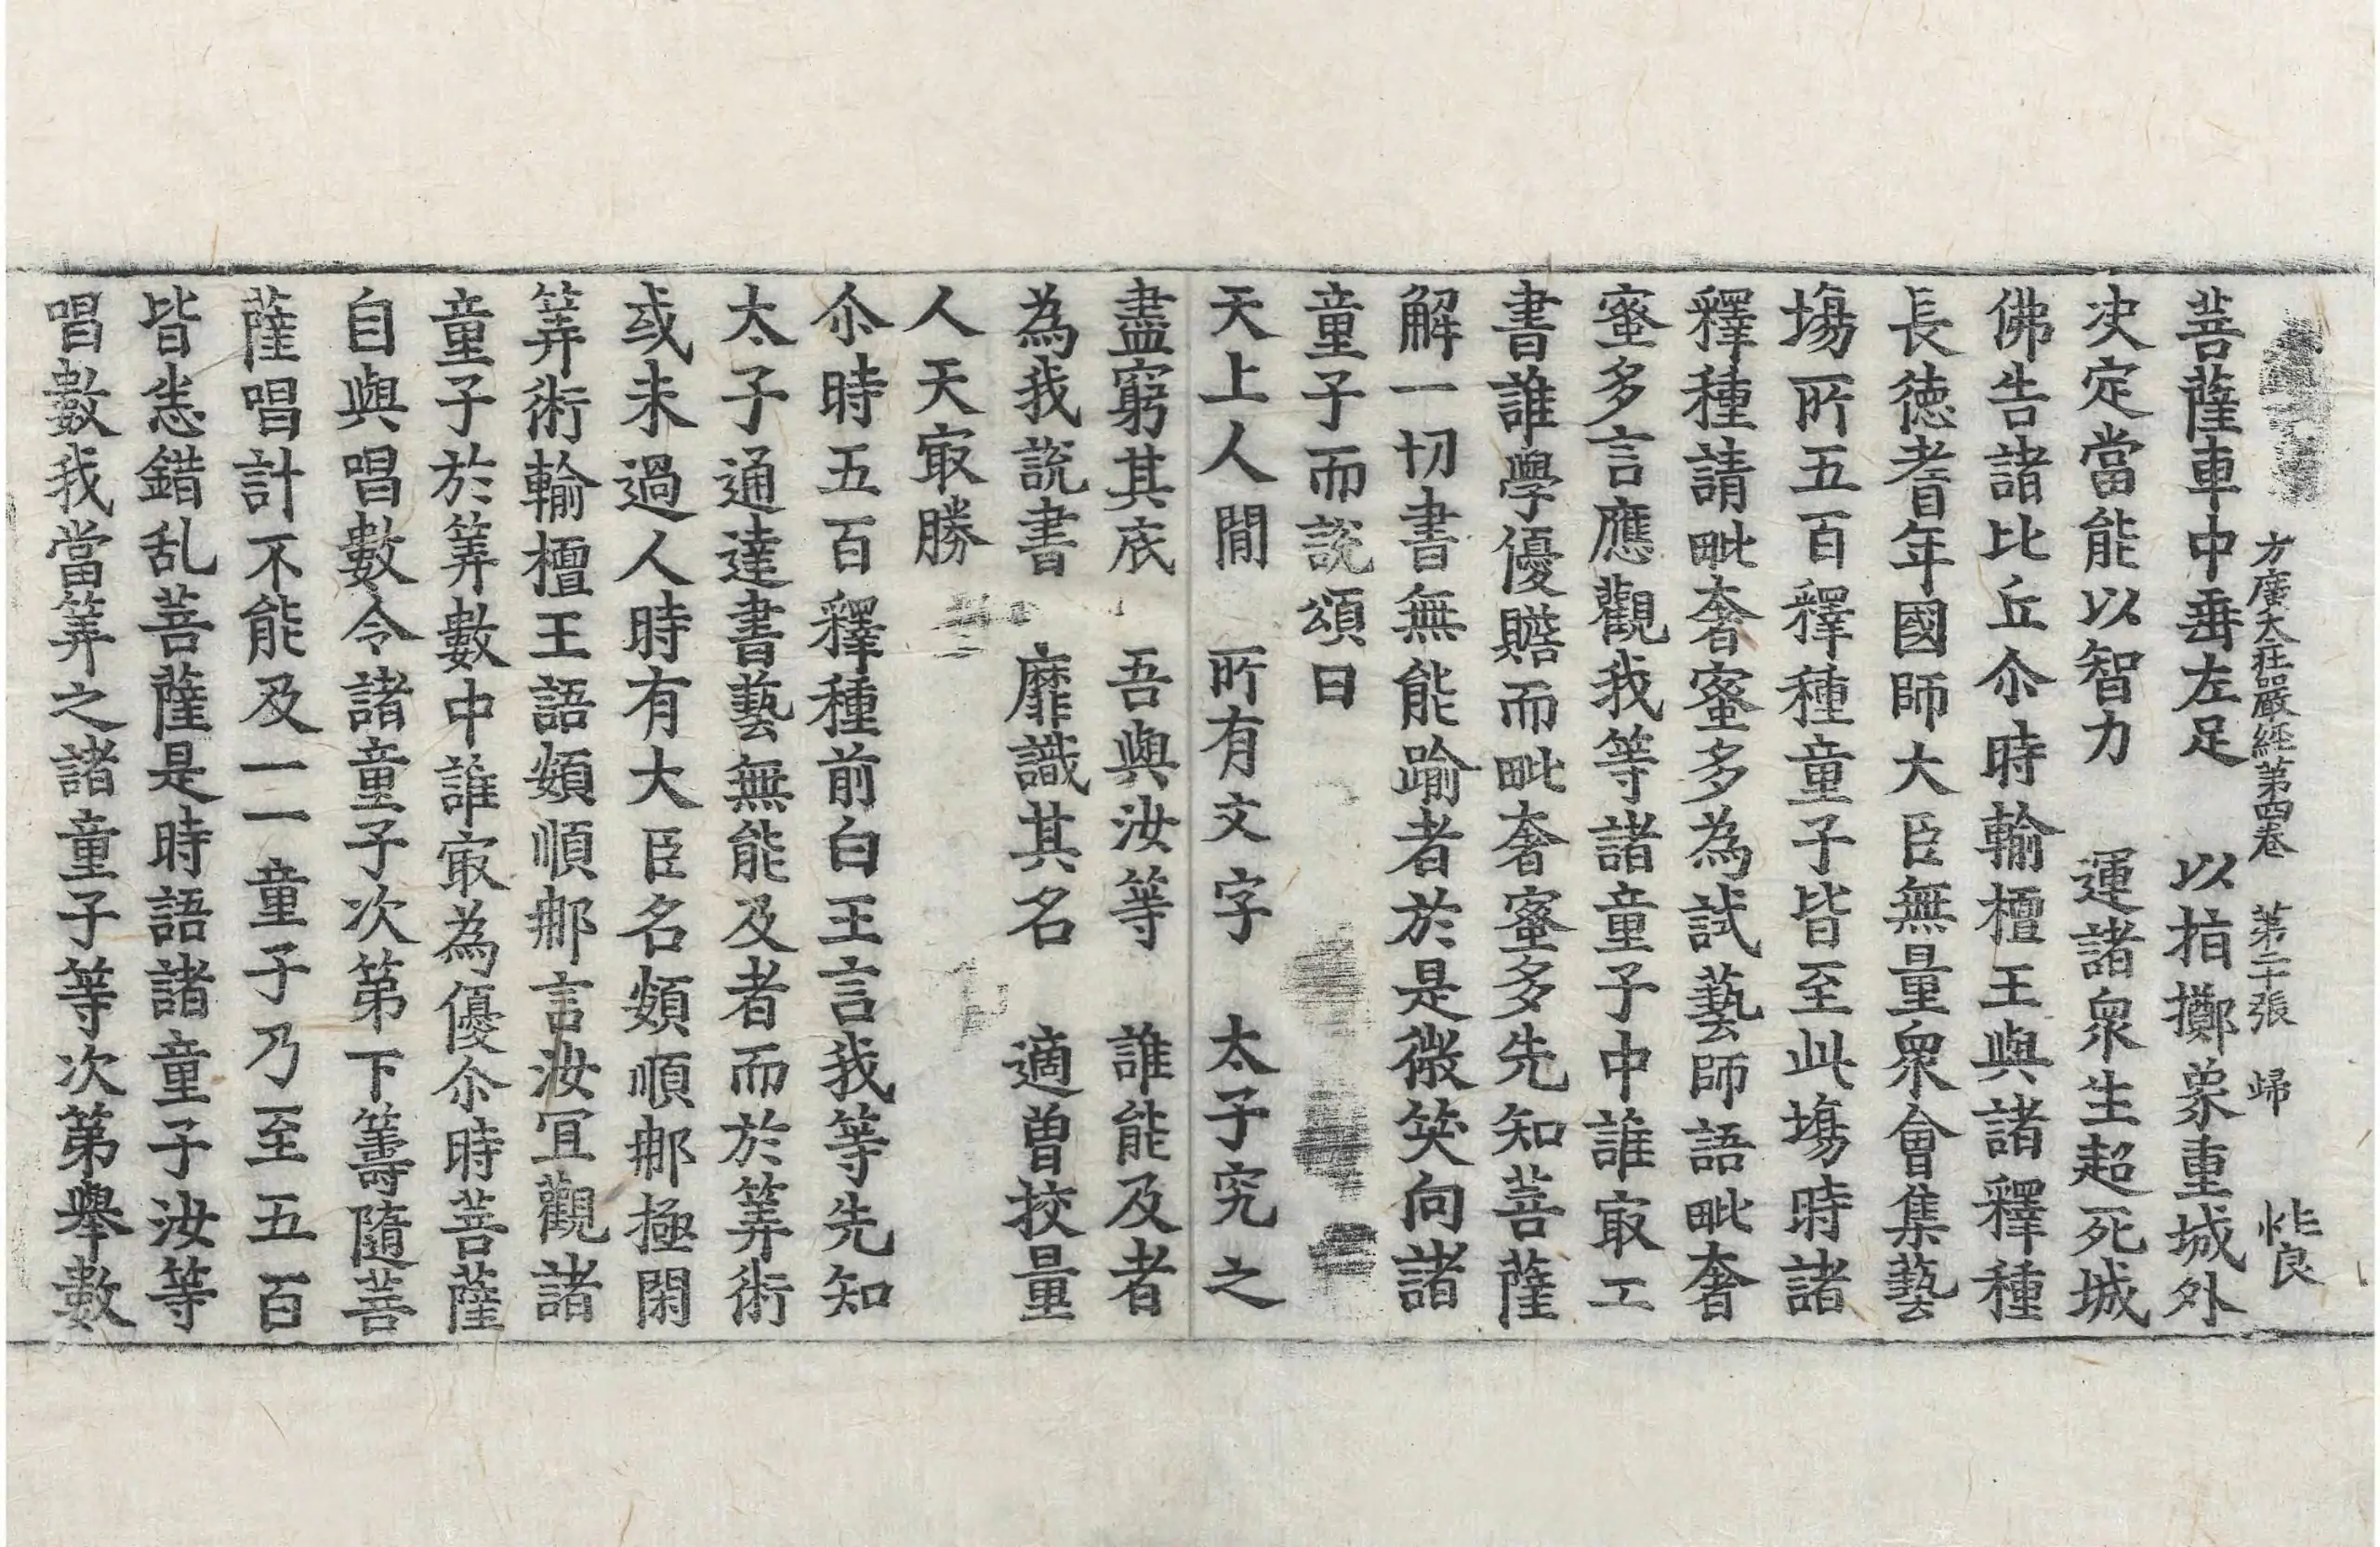 方廣大莊嚴經第四卷 第二十張 歸
菩薩車中垂左足 以指擲象重城外
决定當能以智力 運諸衆生超死城
佛告諸比丘尒時輸檀王與諸釋種
長德耆年國師大臣無量衆會集藝
塲所五百釋種童子皆至此塲時諸
釋種請毗奢蜜多為試藝師語毗奢
蜜多言應觀我等諸童子中誰㝡工
書誰學優贍而毗奢蜜多先知菩薩
解一切書無能踰者於是微笑向諸
童子而說頌曰
天上人間 所有文字 太子究之
盡窮其底 吾與汝等 誰能及者
為我說書 靡識其名 適曾挍量
人天㝡勝
尒時五百釋種前白王言我等先知
太子通達書藝無能及者而於筭術
或未過人時有大臣名頞順那極閑
筭術輸檀王語頞順那言汝冝觀諸
童子於筭數中誰㝡為優尒時菩薩
自與唱數令諸童子次第下籌隨菩
薩唱計不能及一一童子乃至五百
皆悉錯乱菩薩是時語諸童子汝等
唱數我當筭之諸童子等次第舉數